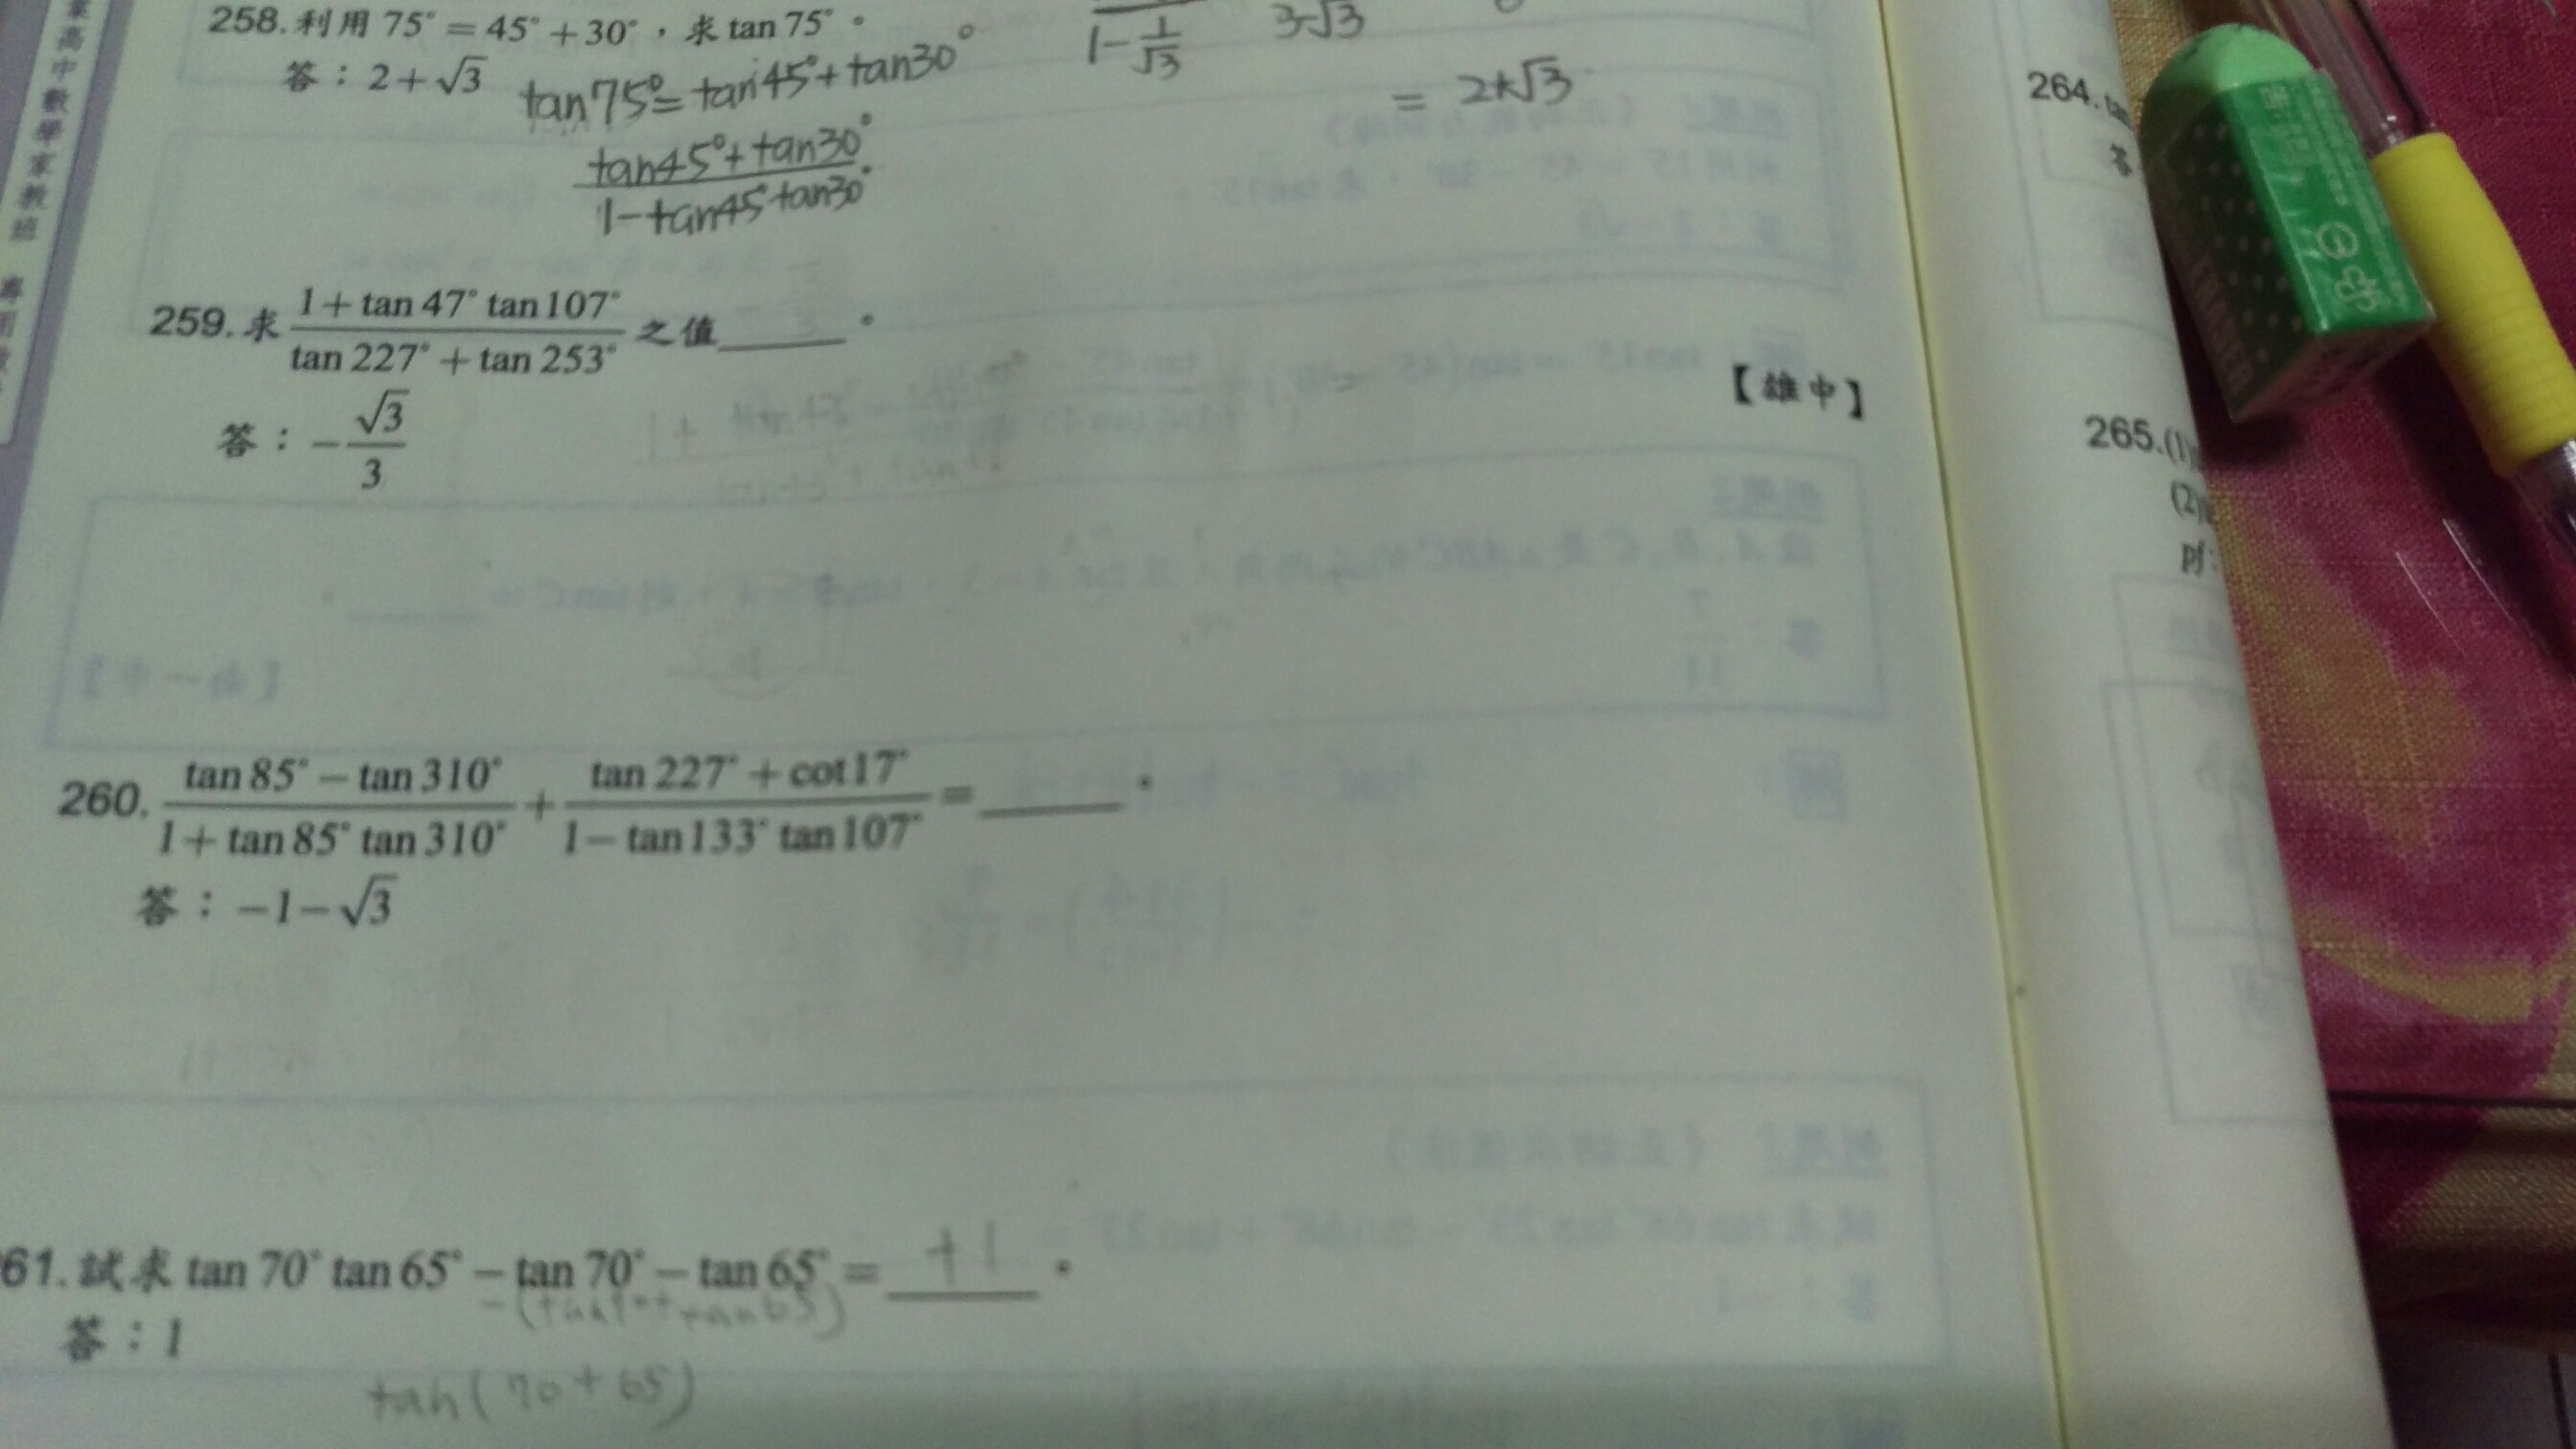 高中數學家教班
258.利用 75° = 45° + 30°，求 tan 75°。
答：2+√3
tan75°=tan45°+tan30°
tan45°+tan30°
1-tan45°tan30°
1-1/√3
3-√3
= 2+√3
259.求 (1+tan 47° tan 107°)/(tan 227° + tan 253°) 之值____。
【雄中】
答：-√3/3
260. (tan 85° − tan 310°)/(1+ tan 85° tan 310°) + (tan 227° + cot 17°)/(1− tan 133° tan 107°) = ____。
答：−1−√3
61.試求 tan 70° tan 65° − tan 70° − tan 65° = +1。
答：1
tan(70+65)
264.
答
265.(1)
(2)
pf:
ERASER